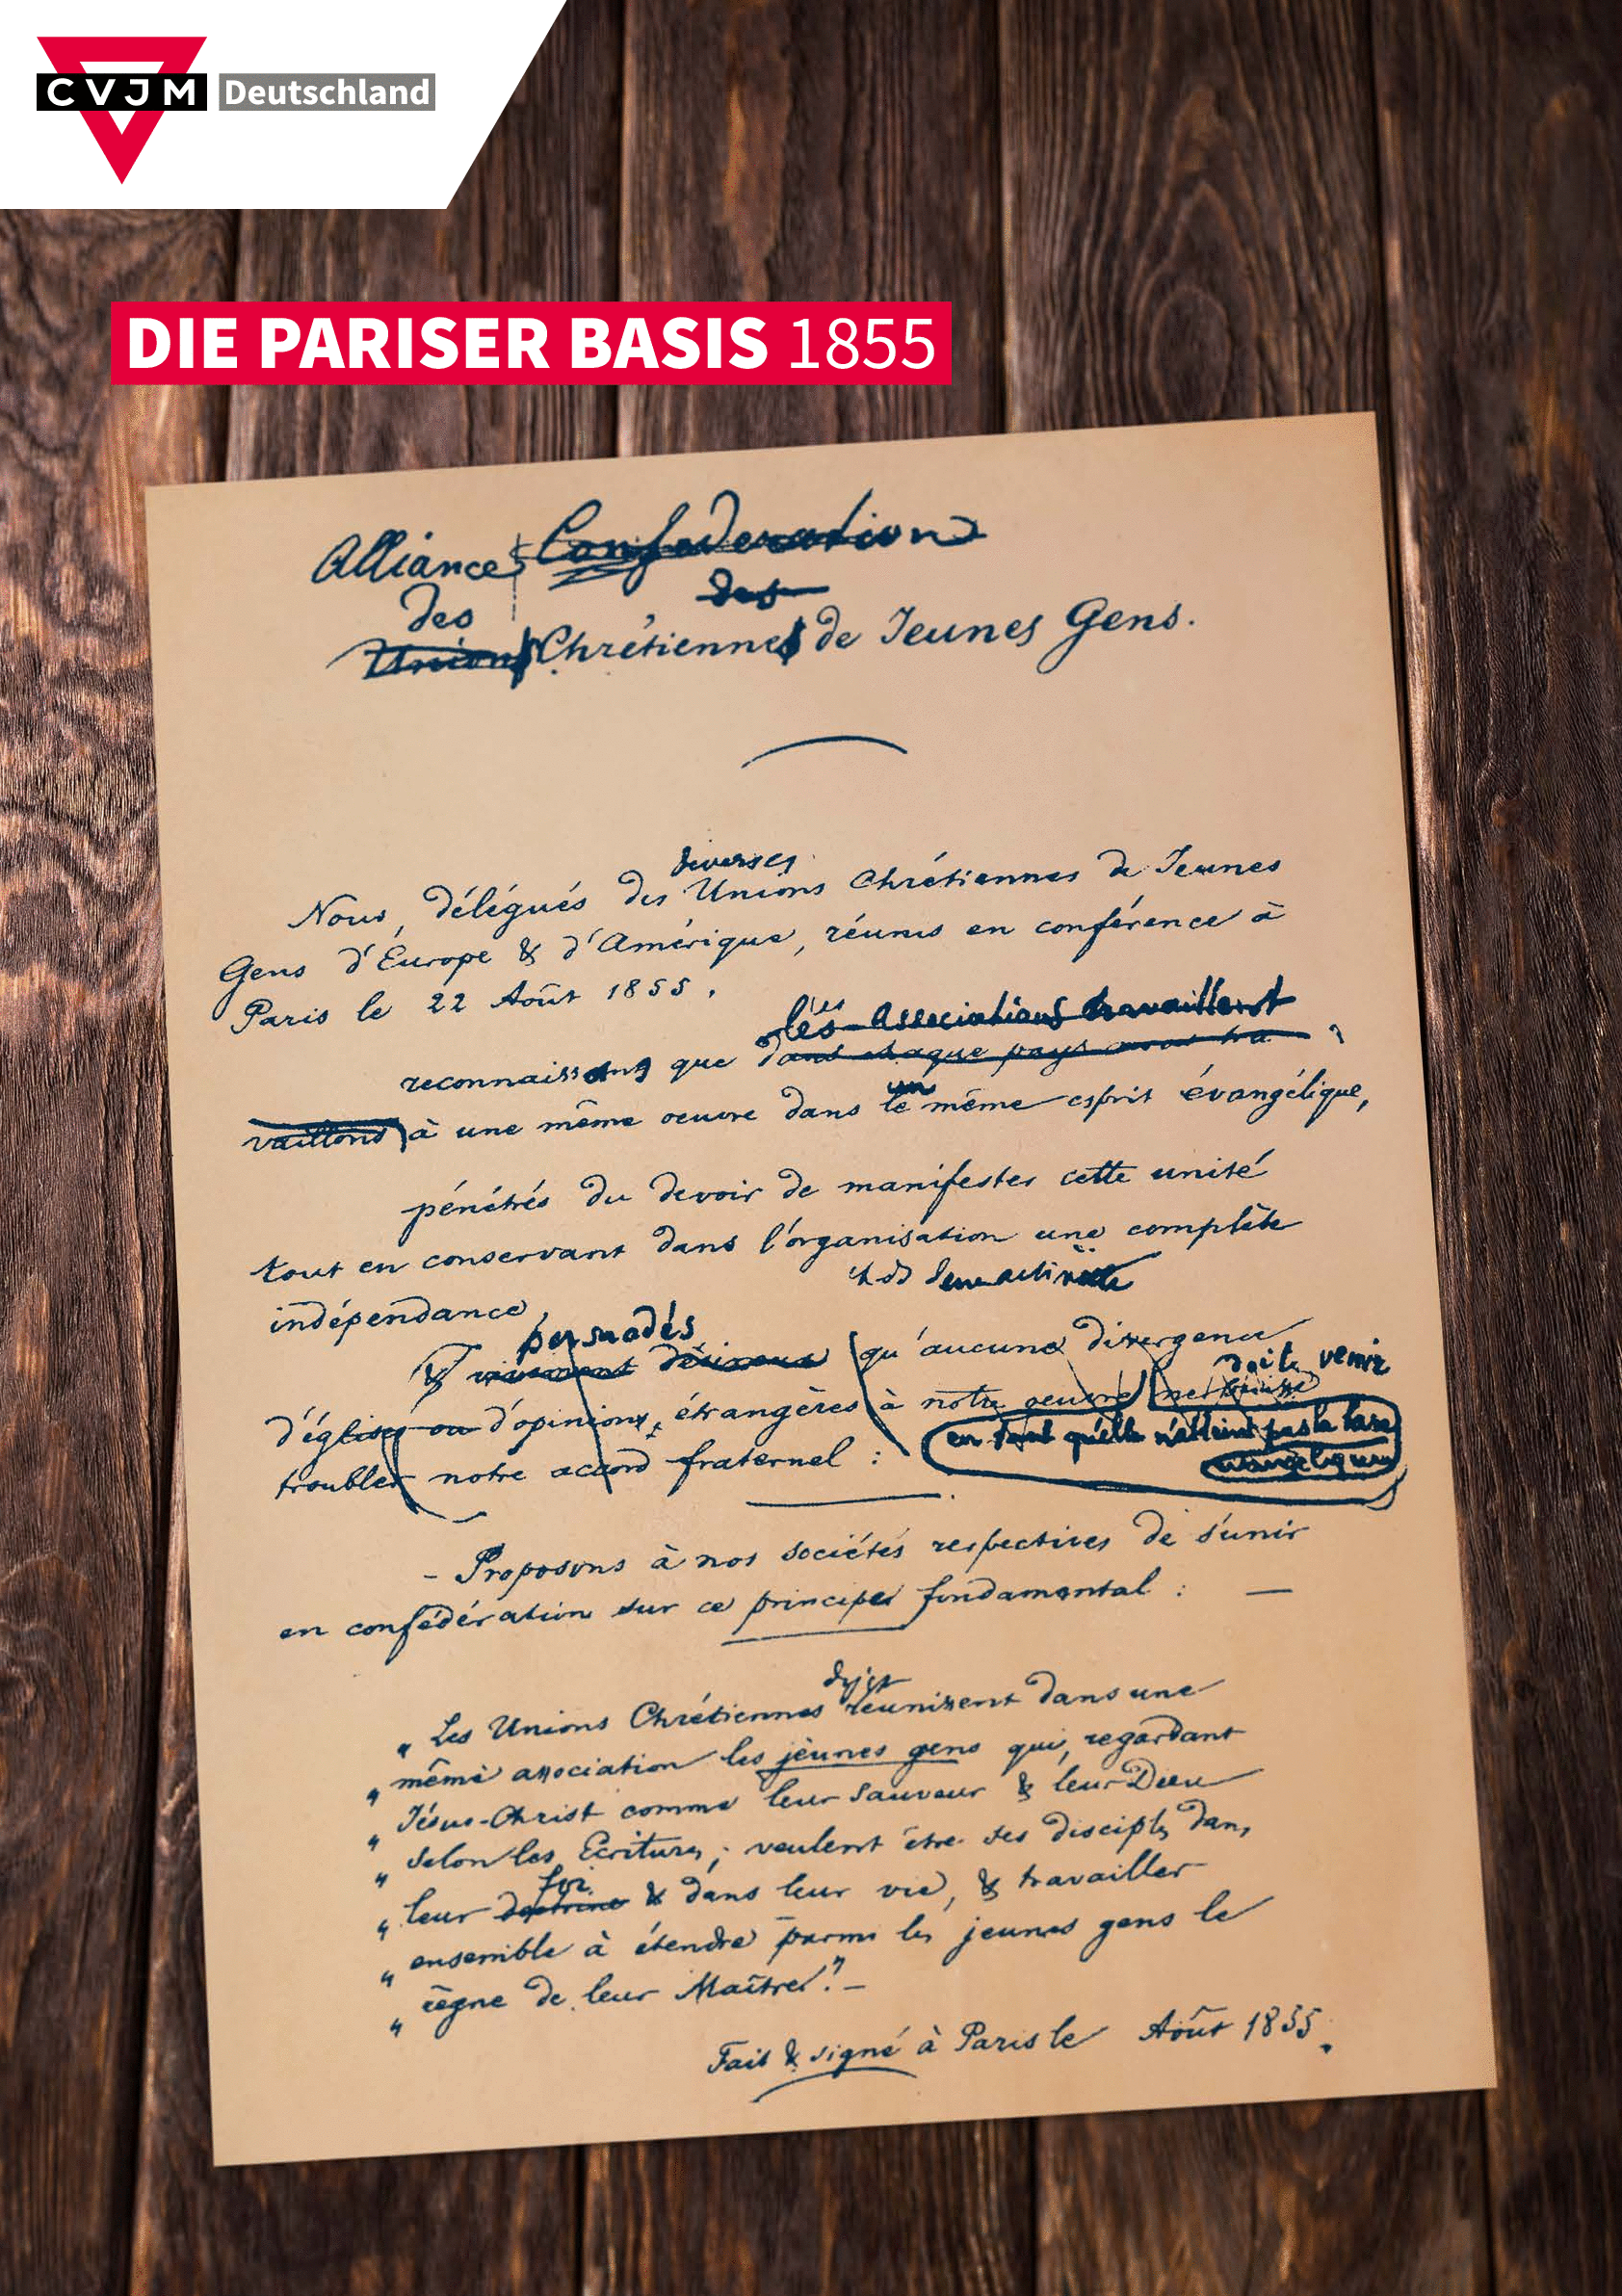 CVJM Deutschland
DIE PARISER BASIS 1855
Alliance Confederation
des des
Unions Chrétiennes de Jeunes Gens.
diverses
Nous, délégués des Unions Chrétiennes de Jeunes
Gens d'Europe & d'Amérique, réunis en conférence à
Paris le 22 Août 1855.
les Associations travaillent
reconnaissons que dans chaque pays nous tra
un
vaillons à une même oeuvre dans le même esprit évangélique,
pénétrés du devoir de manifester cette unité
tout en conservant dans l'organisation une complète
indépendance,
persuadés
& vivement désireux qu'aucune divergence
doite venir
d'églises ou d'opinions, étrangères à notre oeuvre ne puisse
en tant qu'elle n'atteint pas la base
évangélique
troubler notre accord fraternel :
- Proposons à nos sociétés respectives de s'unir
en confédération sur ce principe fondamental : —
„ Les Unions Chrétiennes réunissent dans une
„ même association les jeunes gens qui, regardant
„ Jésus-Christ comme leur Sauveur & leur Dieu
„ selon les Ecritures, veulent être ses disciples dans
foi
„ leur doctrine & dans leur vie, & travailler
„ ensemble à étendre parmi les jeunes gens le
„ règne de leur Maître." —
Fait & signé à Paris le Août 1855.